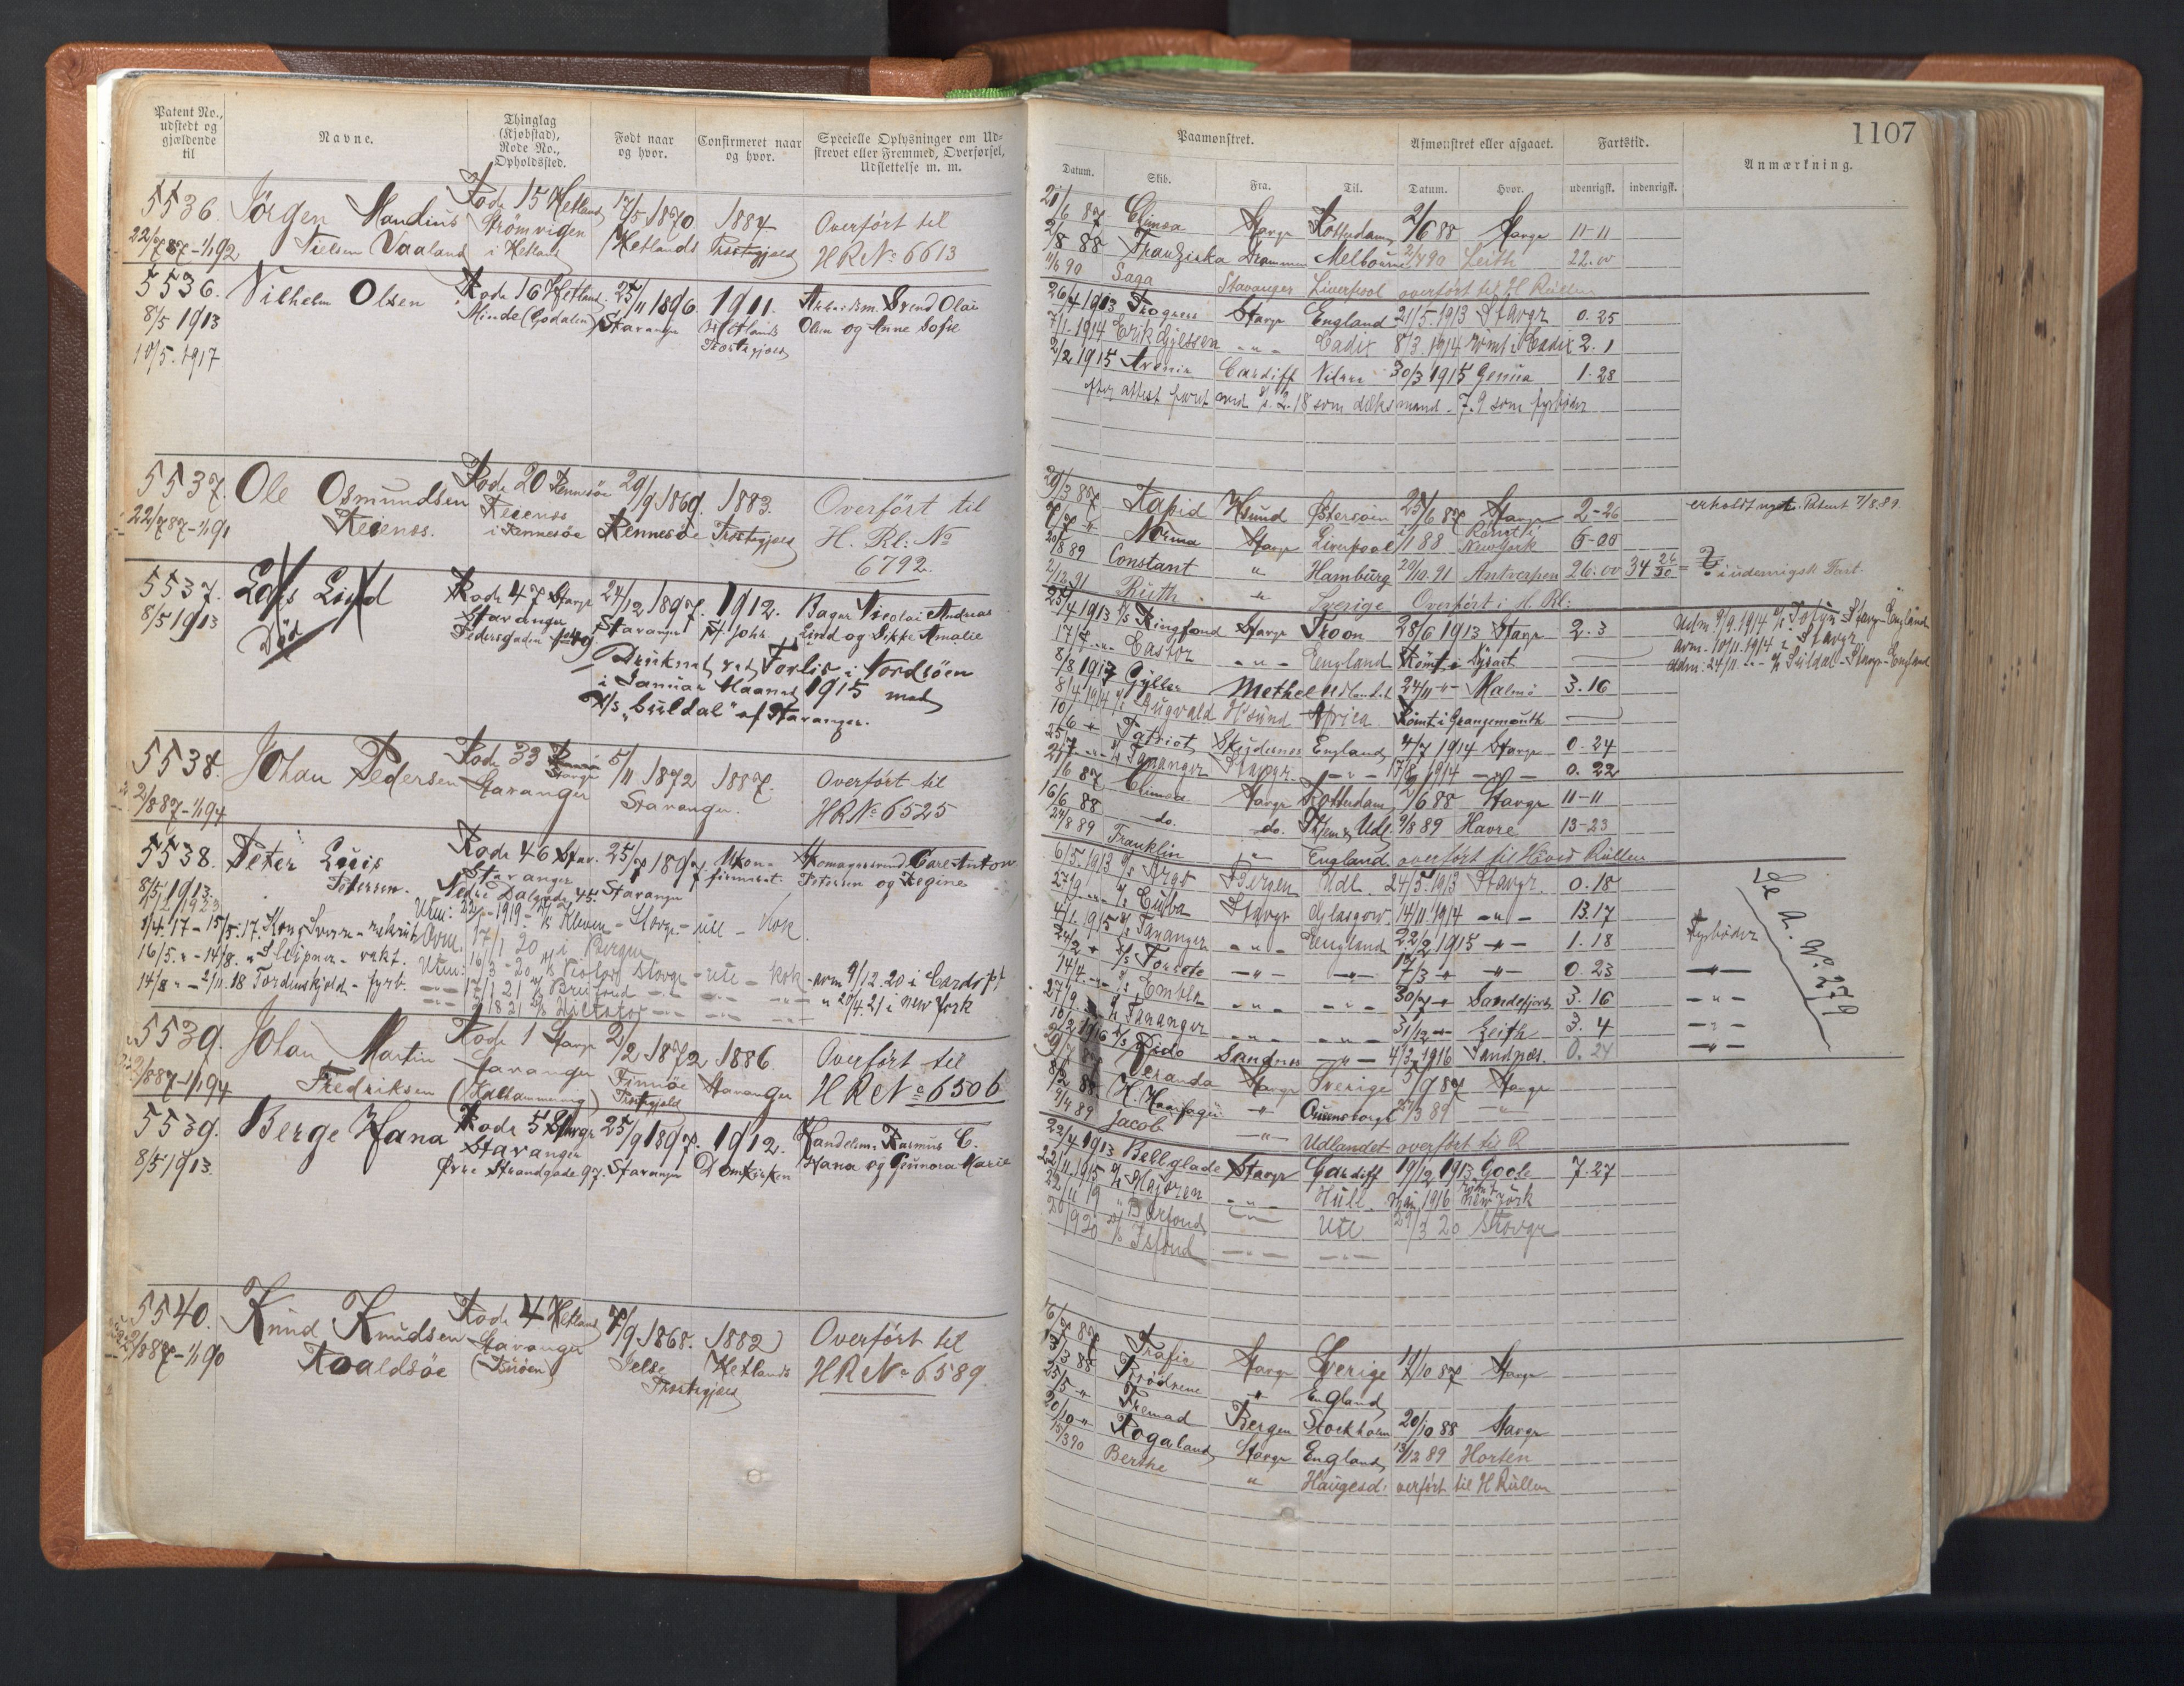 Patent No., udstedt og gjældende til
Navne.
Thinglag (Kjøbstad), Rode No., Opholdssted.
Født naar og hvor.
Confirmeret naar og hvor.
Specielle Oplysninger om Udskrevet eller Fremmed, Overførsel, Udslettelse m. m.
5536. Jörgen Mandius Rode 15 Hetland 17/5 1870 1884 Overført til
22/7 87-1/1 92 Nielsen Vaaland Strömvigen i Hetland Hetlands Præstegjæld HR No 6613
5536. Vilhelm Olsen Rode 16 Hetland 25/11 1896 1911. Svend Olai
8/5 1913 Minde (Godalen) Stavanger Hetlands Olsen og Anne Sofie
10/5. 1917 Præstegjæld
5537. Ole Osmundsen Rode 20 Rennesöe 29/9 1869. 1883. Overført til
22/7 87-1/1 91 i Rennesöe Rennesöe Præstegjæld H. Rl: No
6792.
5537. Lind Rode 47 Stavgr 24/12 1897. 1912. Bager Nicolai Andreas
8/5 1913 Död Stavanger Stavanger St. Johs. Lind og Sikke Amalie
Pedersgaden
Druknet ved Forlis i Nordsöen
i Januar Maaned 1915 med
"Suldal" af Stavanger.
5538. Johan Pedersen Rode 33 Stavgr 5/11 1872 1887. Overført til
2/8 87-1/1 94 Stavanger Stavanger. HR No 6525
5538. Peter Louis Rode 46 Stav. 25/7 1897 Ukon- Skomagersvend Carl Anton
8/5 1913. Petersen. Stavanger Stavanger firmeret. Petersen og Regine
Nedre Dalgade 45.
1/4.17 - 15/5.17. Kong Sverre - rekrut
16/5. " - 14/8. " Sleipner - vakt.
14/8 " - 2/11.18 Tordenskjold - fyrb.
Avm. 17/1 20 i Bergen
kok - avm 9/12.20 i Cardiff
" 20/4.21 i New York
5539. Johan Martin Rode 1 Stavgr 2/2 1872 1886 Overført til
2/8 87-1/1 94 Fredriksen Stavanger Finnöe Stavanger HR No 6506
Præstegjæld
5539. Berge Hana Rode 5 Stavgr 25/9 1897. 1912. Handelsm. Rasmus C.
8/5 1913. Stavanger Stavanger Domkirken Hana og Gunora Marie
Øvre Strandgade 97.
5540. Knud Knudsen Rode 4 Hetland 7/9 1868. 1882 Overført til
2/8 87-1/1 90 Roaldsöe Stavanger Jelse Hetlands HR No 6589
Præstegjæld
1107
Paamønstret.
Afmønstret eller afgaaet.
Fartstid.
Anmærkning.
Datum. Skib. Fra. Til. Datum. Hvor. udenrigsk. indenrigsk.
21/6 87 Climax Stavgr Rotterdam 2/6 88 Stavgr 11-11
2/8 88 Franziska Drammen Melbourne 2/4 90 Leith 22.00
11/6 90 Saga Stavanger Liverpool overført til H Rullen
26/4 1913 Progress Stavgr England 21/5.1913 Stavgr 0.25
7/1-1914 Erik Gjessen - " - Cadix 8/3.1914 römt i Cadix 2.1
2/2 1915 Avenir Cardiff 30/3 1915 Genua 1.28
som dæksmand - 7.9 som fyrböder
29/3 87 Rapid Hsund Østersøen 25/6 87 Stavgr 2-26 erholdt nyt Patent 7/8.89.
7/7 " Norma Stavgr Liverpool 1/1 88 Römt i New York 5-00
20/8 89 Constant " Hamburg 20/10.91 Antverpen 26.00 34 26/30 = i udenrigsk Fart.
2/12 91 Ruth " Sverige Overført i H. Rl:
25/4 1913 Ringfond Stavgr Troon 28/6 1913 Stavgr 2.3
17/7 " Castor - " - England Römt i Dysart
8/8 1913 Gyller Methel Udlandet 24/11 " Malmö 3.16
8/4 1914 Augvald Hsund Africa Römt i Grangemouth
10/6 " Patriot Skudesnes England 4/7 1914 Stavgr 0.24
25/7 " Tananger Stavgr - " - 17/8 1914 - " - 0.22
Udm. 9/9.1914 - Stavgr - England
Avm - 10/11.1914 i Stavgr
Udm. 24/11 " Suldal - Stavgr - England
21/6 87 Climax Stavgr Rotterdam 2/6 88 Stavgr 11-11
16/6 88 do. do. Udl. 9/8 89 Havre 13-23
24/8 89 Franklin " England overført til Hoved Rullen
6/5 1913 Argo Bergen Udl. 24/5.1913 Stavgr. 0.18
27/9 " Cuba Stavgr Glasgow 14/11 1914 - " - 13.17
4/1 1915 Tananger - " - England 22/2 1915 - " - 1.18 Fyrböder
24/2 " Forsete - " - - " - 17/3 " - " - 0.23 - " -
14/4 " Embla - " - - " - 30/7 " Sandefjord 3.16 - " -
27/9 " Tananger - " - - " - 31/12 " Leith 3.4 - " -
Fido Sandnes - " - 4/3 1916 Sandnæs. 0.24 - " -
Se A. No. 279
Veranda Stavgr Sverige 5/9 87 Stavgr
H. Haarfager " 24/3 89 - " -
9/4 89 Jacob - " - Udlandet overført til R
22/4 1913 Bellglade Stavgr Cardiff 19/12 1913 Goole 7.27
22/11 1915 Majoren - " - Hull 1916 römt New York
22/11 19 Barfond - " - Ute 29/3 20 Stavgr
20/9 20 Isfond - " - - " -
16/7 87 Trafic Stavgr Sverige 17/10 87 Stavgr
13/3 88 Brödrene " England
25/5 " Fremad Bergen Stockholm 20/10 88 Stavgr
20/10 " Rogaland Stavgr England 13/12 89 Horten
15/3 90 Berthe " Haugesd. overført til H Rullen